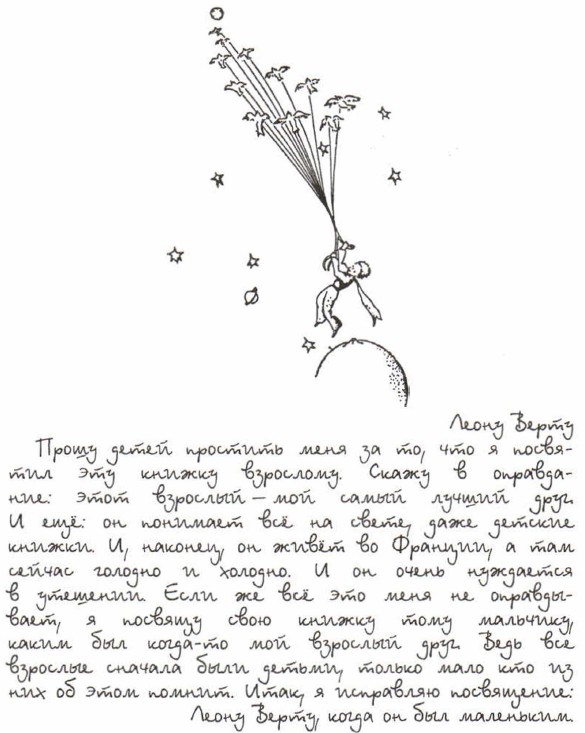 Леону Верту
Прошу детей простить меня за то, что я посвя-
тил эту книжку взрослому. Скажу в оправда-
ние: этот взрослый — мой самый лучший друг.
И ещё: он понимает всё на свете, даже детские
книжки. И, наконец, он живёт во Франции, а там
сейчас голодно и холодно. И он очень нуждается
в утешении. Если же всё это меня не оправды-
вает, я посвящу свою книжку тому мальчику,
каким был когда-то мой взрослый друг. Ведь все
взрослые сначала были детьми, только мало кто из
них об этом помнит. Итак, я исправляю посвящение:
Леону Верту, когда он был маленьким.